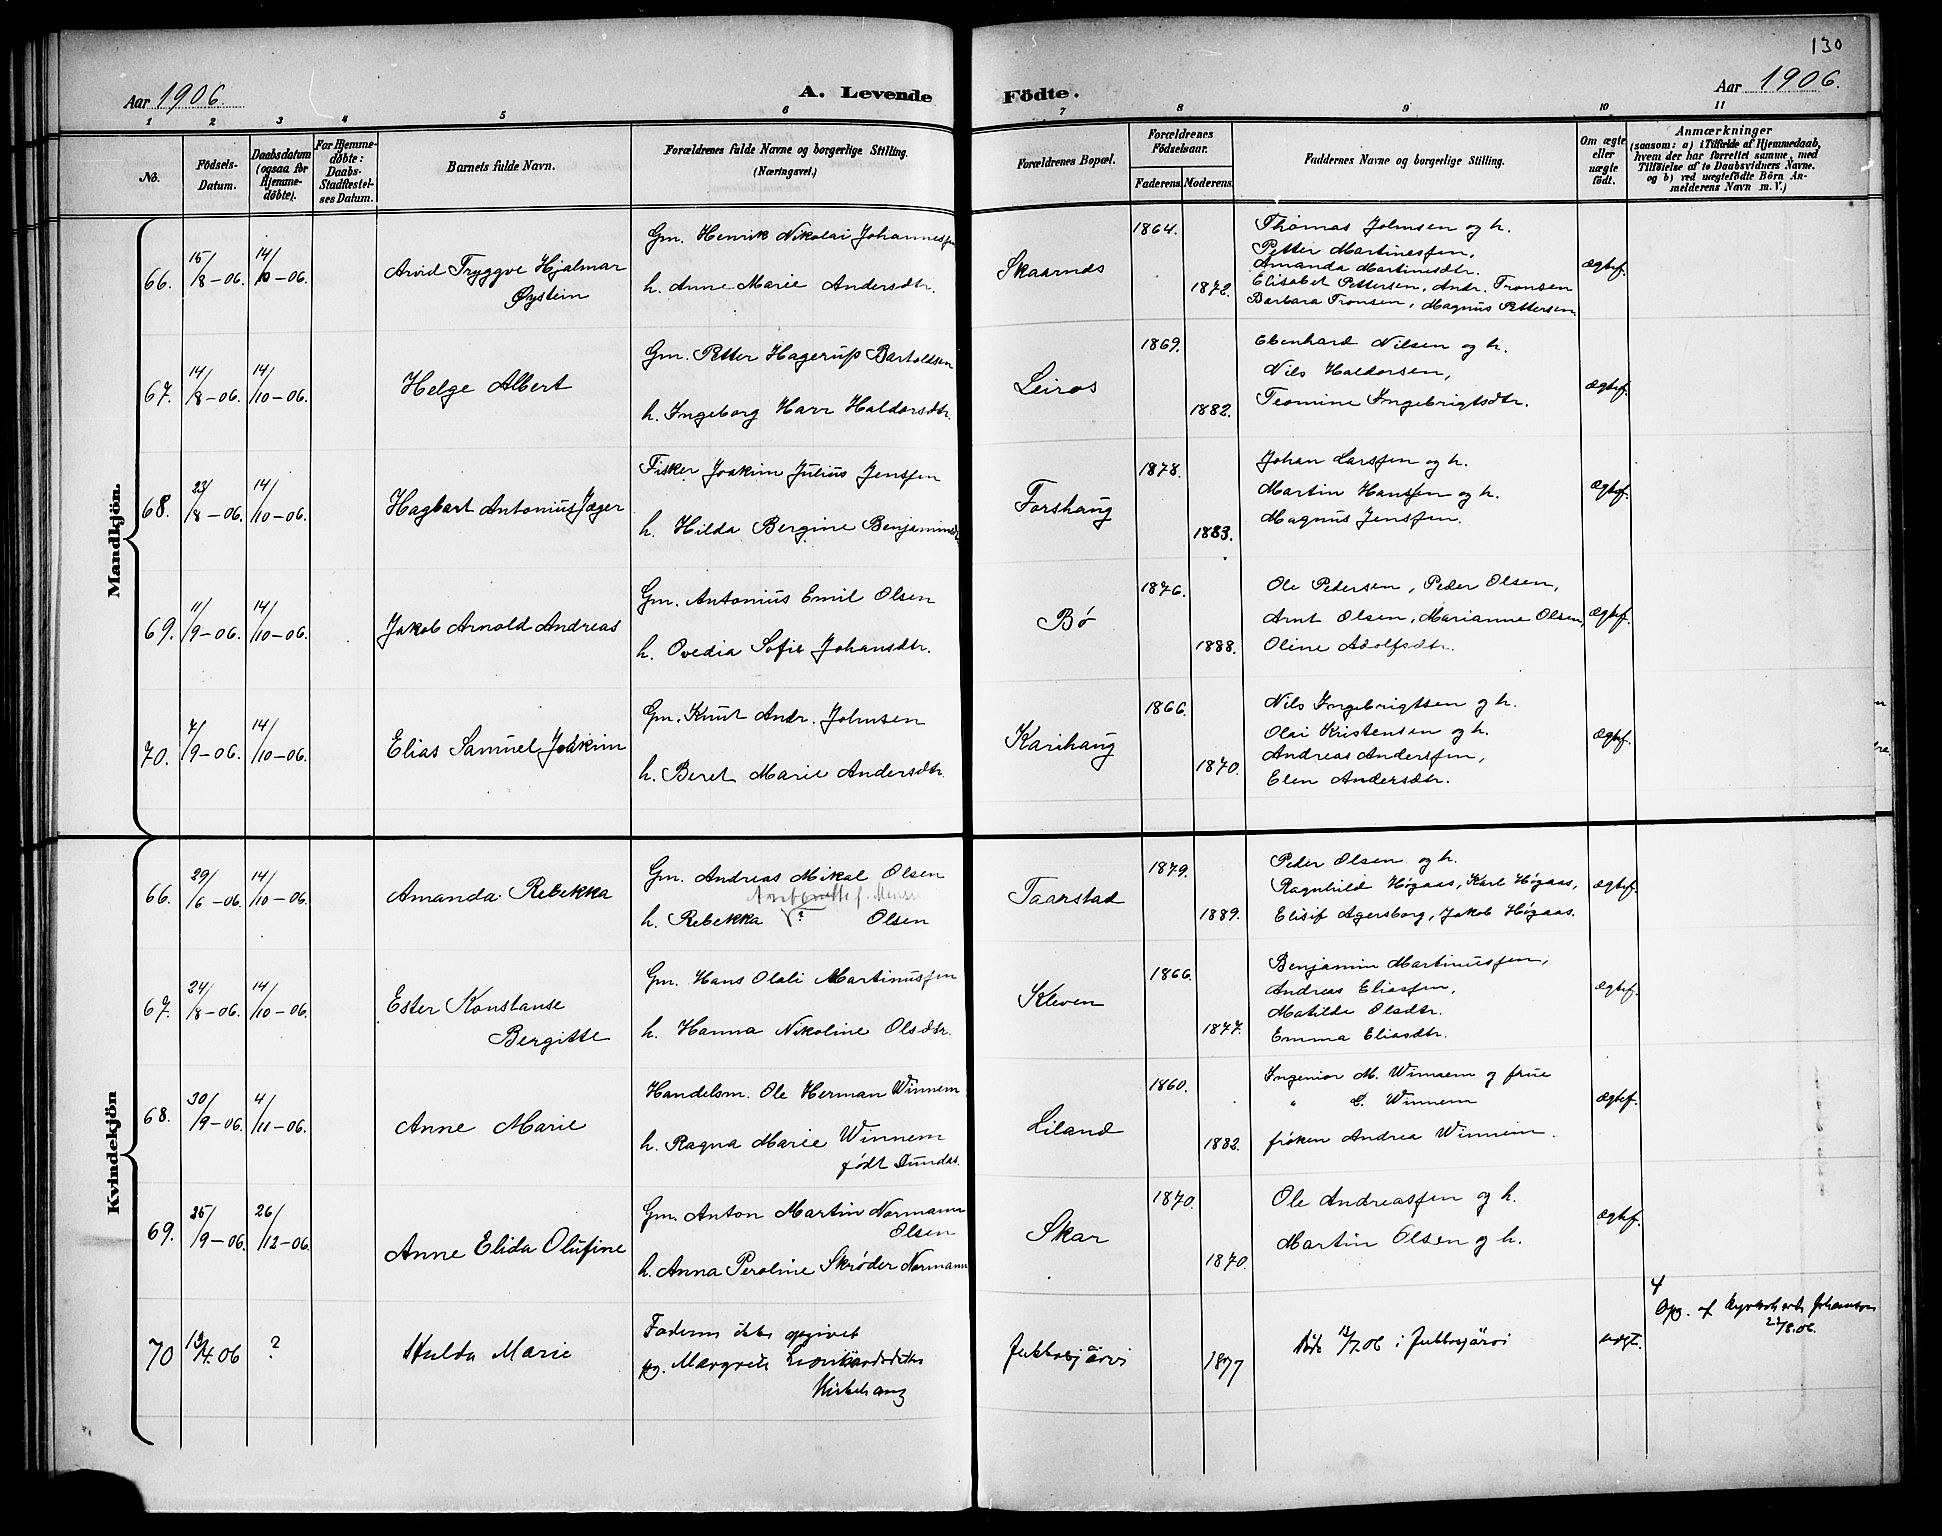 130
Aar 1906.
A. Levende Födte.
Aar 1906.
1 2 3 4 5 6 7 8 9 10 11
No.
Födsels-Datum.
Daabsdatum (ogsaa for Hjemmedøbte).
For Hjemmedøbte: Daabs-Stadfæstelses Datum.
Barnets fulde Navn.
Forældrenes fulde Navne og borgerlige Stilling. (Næringsvei.)
Forældrenes Bopæl.
Forældrenes Födselsaar.
Faderens. Moderens.
Faddernes Navne og borgerlige Stilling.
Om ægte eller uægte født.
Anmærkninger
(saasom: a) i Tilfælde af Hjemmedaab, hvem der har forrettet samme, med Tilföielse af to Daabsvidners Navne. og b) ved uægtefødte Börn Anmelderens Navn m. V.)
Mandkjön.
66. 15/8-06. 14/10-06. Arvid Tryggve Hjalmar Øystein
Gm. Henrik Nikolai Johannessen
h. Anne Marie Andersdtr.
Skaarnes 1864. 1872.
Thomas Johnsen og h.
Petter Martinessen,
Amanda Martinesdtr.
Elisabet Pettersen, Andr. Tronsen
Barbara Tronsen, Magnus Pettersen.
ægtef.
67. 14/8-06. 14/10-06. Helge Albert
Gm. Petter Hagerup Bartoldsen
h. Ingeborg Harr Haldorsdtr.
Leiros 1869. 1882.
Ebenhard Nilsen og h.
Nils Haldorsen,
Teomine Ingebrigtsdtr.
ægtef.
68. 23/8-06. 14/10-06. Hagbart Antonius Jæger
Fisker Joakim Julius Jenssen
h. Hilda Bergine Benjaminsdtr
Forshaug 1878. 1883.
Johan Larssen og h.
Martin Hanssen og h.
Magnus Jenssen.
ægtef.
69. 11/9-06. 14/10-06. Jakob Arnold Andreas
Gm. Antonius Emil Olsen
h. Ovedia Sofie Johansdtr.
Bø 1876. 1888.
Ole Pedersen, Peder Olsen,
Arnt Olsen, Marianne Olsen,
Oline Adolfsdtr.
ægtef.
70. 7/9-06. 14/10-06. Elias Samuel Joakim
Gm. Knut Andr. Johnsen
h. Beret Marie Andersdtr.
Karihaug 1866. 1870.
Nils Ingebrigtsen og h.
Olai Kristensen og h.
Andreas Anderssen,
Elen Andersdtr.
ægtef.
Kvindekjön
66. 29/6-06. 14/10-06. Amanda Rebekka
Gm. Andreas Mikal Olsen
h. Rebekka ? Olsen
Taarstad 1879. 1889.
Peder Olsen og h.
Ragnhild Høgaas, Karl Høgaas,
Elisif Agersborg, Jakob Høgaas.
ægtef.
67. 24/8-06. 14/10-06. Ester Konstanse Bergitte
Gm. Hans Olali Martinussen
h. Hanna Nikoline Olsdtr.
Kleven 1866. 1877.
Benjamin Martinussen,
Andreas Eliassen,
Matilde Olsdtr.
Emma Eliasdtr.
ægtef.
68. 30/9-06. 4/11-06. Anne Marie
Handelsm. Ole Herman Winnem
h. Ragna Marie Winnem
født Dundas.
Liland 1860. 1882.
Ingeniør M. Winnem og frue
" C. Winnem
frøken Andrea Winnem.
ægtef.
69. 25/9-06. 26/12-06. Anne Elida Olufine
Gm. Anton Martin Normann Olsen
h. Anna Peroline Skrøder Normann
Skar 1870. 1870.
Ole Andreassen og h.
Martin Olsen og h.
ægtef.
70 13/4.06 ? Hulda Marie
Faderen ikke opgivet
pg. Margrete Leonhardsdatter
Jukkasjärvi 1877
Døde 12/7.06 i Jukkasjärvi
uægt.
4
Opg. af Johansson
27/8.06.